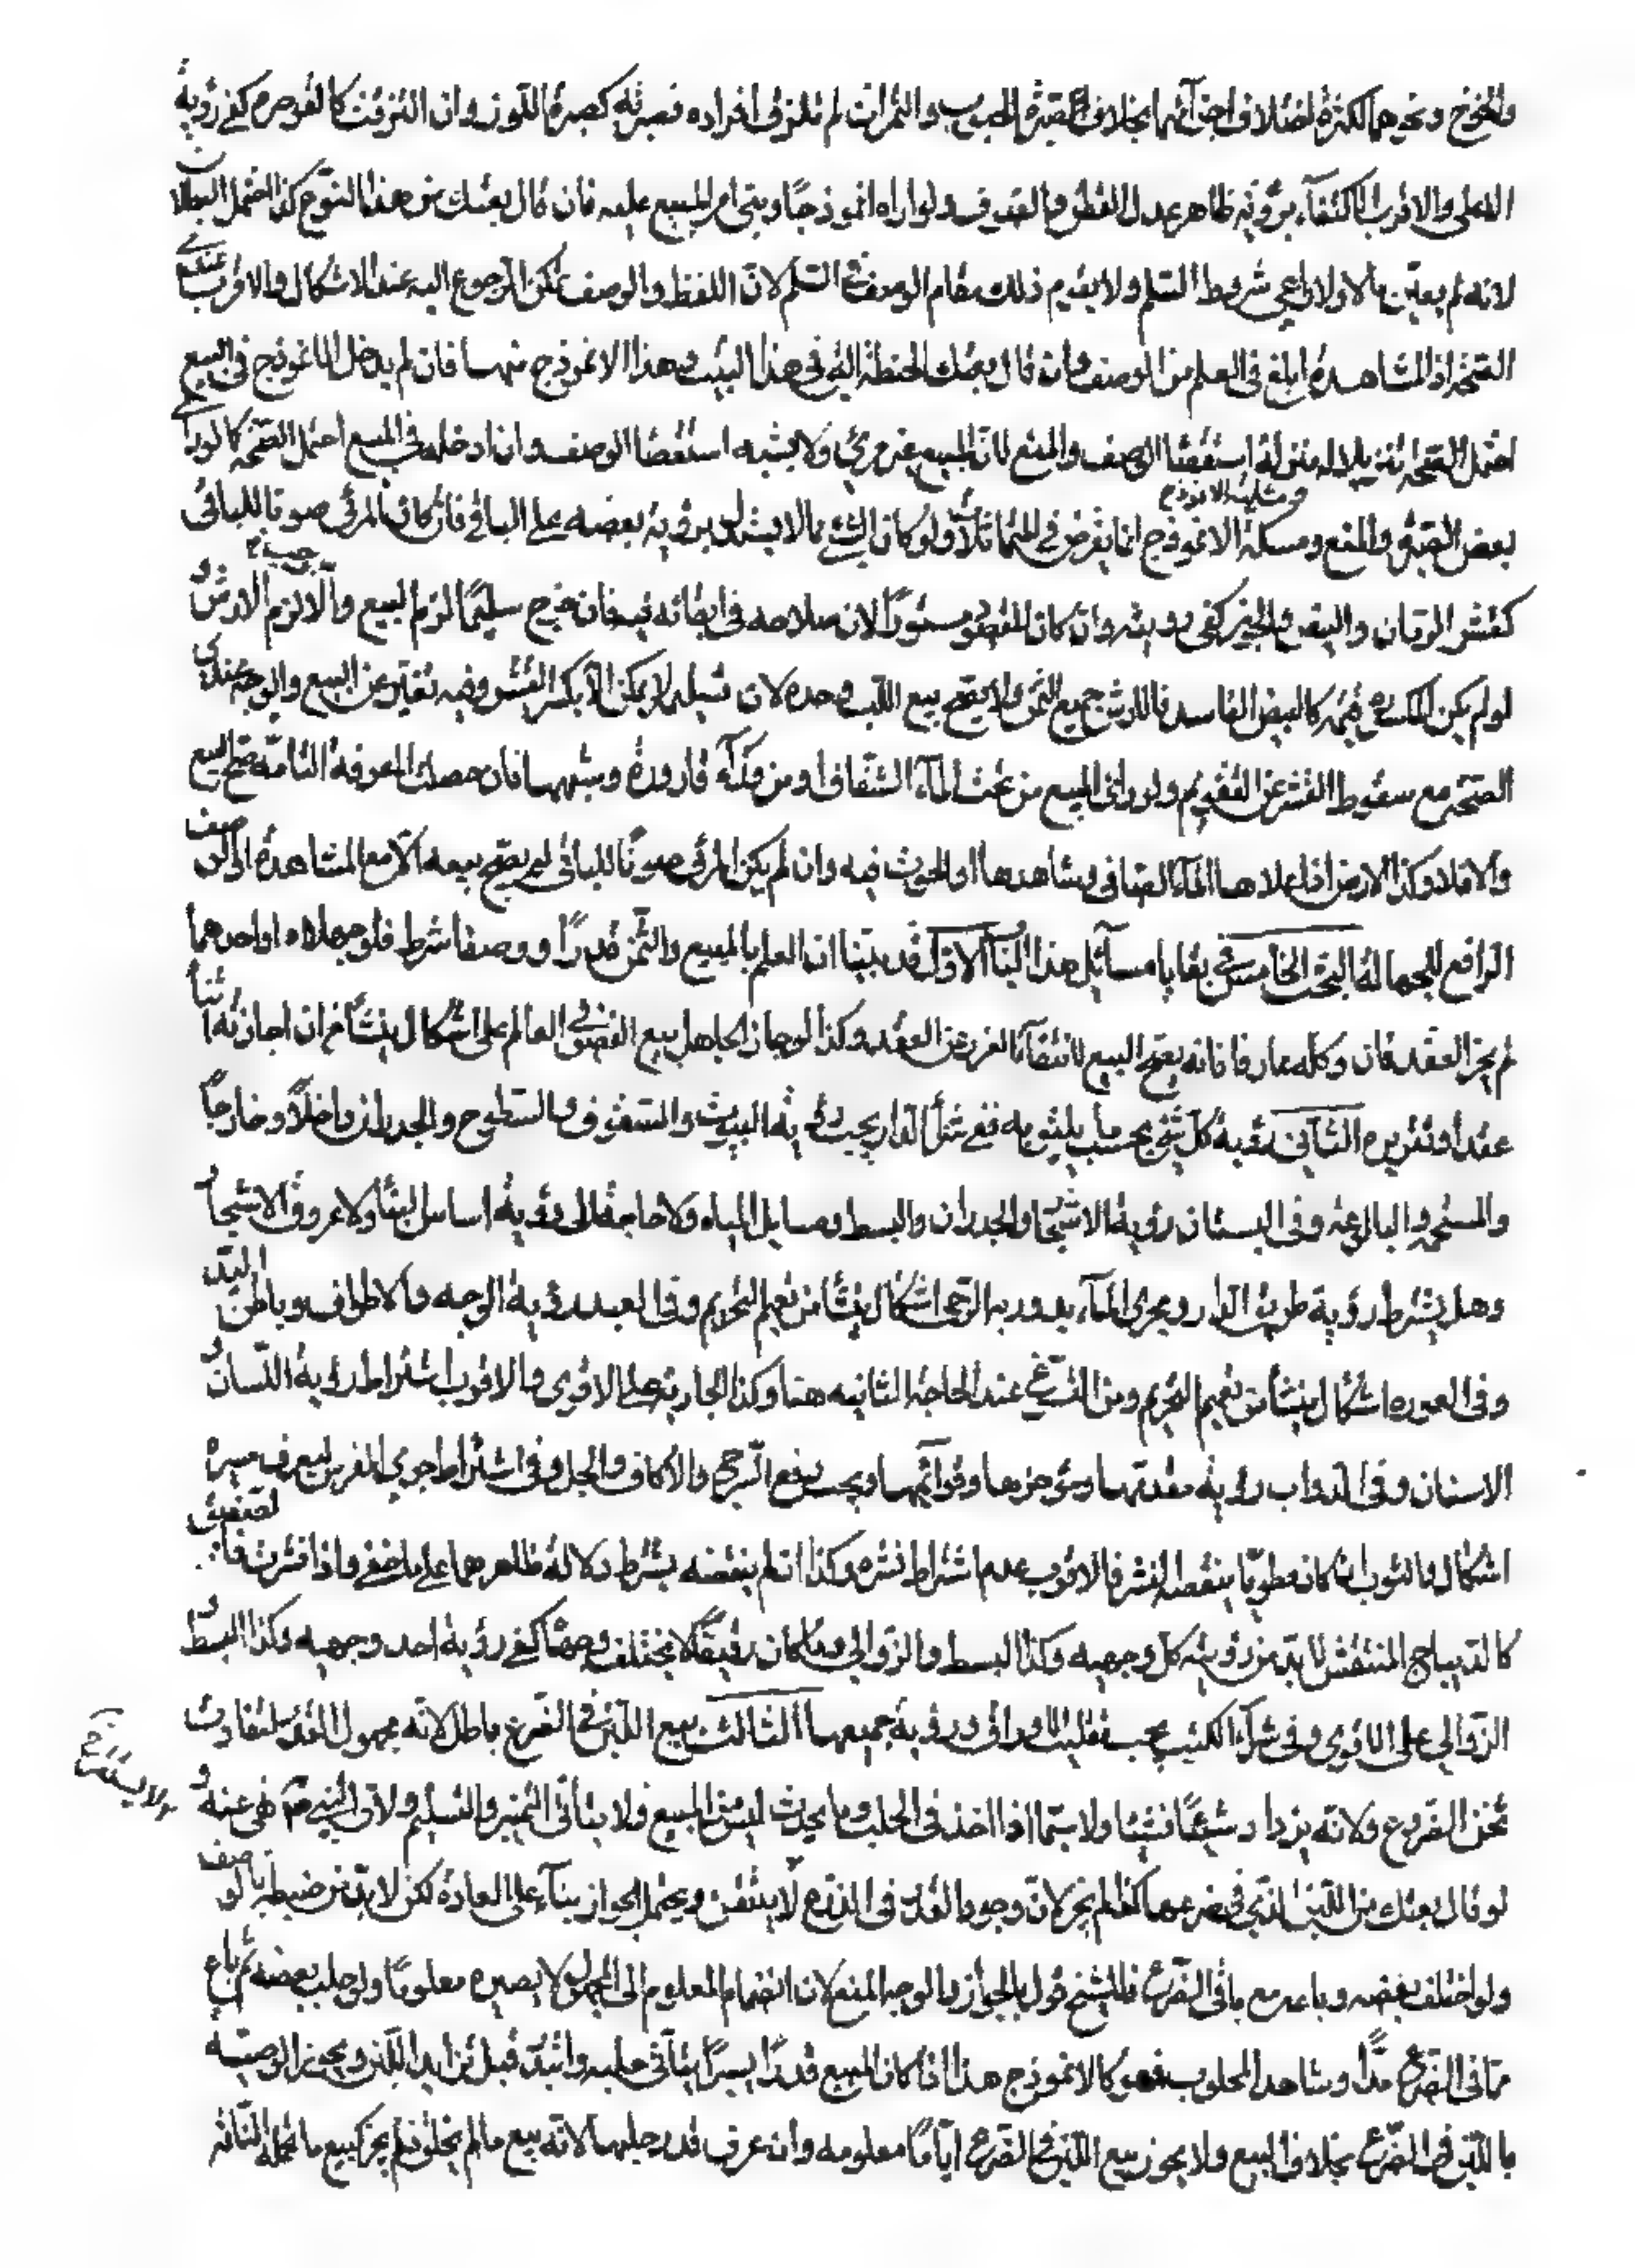 والخوخ ونحوهما لكثرة اختلاف اجزائهما بخلاف صبرة الحبوب والثمرات لم تلتزق افراده فصبرته كصبرة اللوز وان التزقت كالقوصرة كفى رؤية
الاعلى والاقرب الاكتفاء برؤية ظاهر عدل القطن والصوف ولو اراه انموذجا وبنى امر المبيع عليه فان قال بعتك من هذا النوع كذا احتمل البطلان
لانه لم يعين مالا ولا راعى شروط السلم ولا يقوم ذلك مقام الوصف في السلم لان اللفظ والوصف يمكن الرجوع اليه عند الاشكال والاقرب عندي
الصحة اذ المشاهدة ابلغ في العلم من الوصف وان قال بعتك الحنطة التي في هذا البيت وهذا الانموذج منها فان لم يدخل الانموذج في البيع
احتمل الصحة تنزيلا له منزلة استقصاء الوصف والمنع لان المبيع غير مرئي ولا يشبه استقصاء الوصف وان ادخله في المبيع احتمل الصحة كما لو رأى
بعض الصبرة والمنع ومسئلة الانموذج انما يفرض في المتماثلات ولو كان الشيء مما لا يستدل برؤية بعضه على الباقي فان كان المرئي صونا للباقي
كقشر الرمان والبيض والخبز كفى رؤيته وان كان المقصود مستورا لان صلاحه في ابقائه فيه فان خرج سليما لزم البيع والا لزم الارش ولو
لو لم يكن لمكسوره قيمة كالبيض الفاسد فالارش جميع الثمن ولا يصح بيع اللب وحده لان تسليمه لا يمكن الا بكسر القشر وفيه تغير عن المبيع والوجه عندي
الصحة مع سقوط القشر عن التقويم ولو رأى المبيع من تحت الماء الشفاف او من وراء قارورة وشبهها فان حصلت المعرفة التامة صح البيع
والا فلا وكذا الارض اذا علاها الماء الصافي وشاهدها او الحوت فيه وان لم يكن المرئي صونا للباقي لم يصح بيعه الا مع المشاهدة او الوصف
الرافع للجهالة البحث الخامس في بقايا مسائل هذا الباب الاول قد بينا ان العلم بالمبيع والثمن قدرا ووصفا شرط فلو جهلاه او احدهما
لم يجز العقد فان وكله عارفا فانه يصح البيع لانتفاء الغرر عن العقد وكذا لو جاز الجاهل بيع الفضولي العالم على اشكال ينشأ من ان اجازته انشأ
عقد او تقريره الثاني رؤية كل شيء بحسب ما يليق به ففي شراء الدار يجب رؤية البيوت والسقوف والسطوح والجدران داخلا وخارجا
والمستحم والبالوعة وفي البستان رؤية الاشجار والجدران والبسط ومسايل المياه ولا حاجة الى رؤية اساس البناء ولا عروق الاشجار
وهل يشترط رؤية طريق الدار ومجرى الماء يدور به الرحى اشكال ينشأ من تعميم التحريم وفي العبد رؤية الوجه والاطراف وباطن اليد
وفي العورة اشكال ينشأ من تعميم التحريم ومن التسرغ عند الحاجة الثانيه هنا وكذا الجارية على الاقوى والاقرب اشتراط رؤية اللسان و
الاسنان وفي الدواب رؤية مقدمها ومؤخرها وقوائمها ويجب رفع السرج والاكاف والجل وفي اشتراط جري الفرس ليعرف سيره
اشكال والثوب ان كان مطويا ينقصه النشر فالاقرب عدم اشتراط نشره وكذا ان لم ينقصه بشرط دلالة ظاهرهما على ما خفي واذا نشرت فالصفيق
كالديباج المنتقش لا بد من رؤيته كل وجهيه وكذا البسط والزوالي وما كان رقيقا لا يختلف وجهاه كفى رؤية احد وجهيه وكذا البسط و
الزوالي على الاقوى وفي شراء الكتب يجب تقليب الاوراق ورؤية جميعها الثالث بيع اللبن في الضرع باطل لانه مجهول القدر لتفاوت
ثخن الضروع ولانه يزداد شيئا فشيئا ولا سيما اذا اخذ في الحلب وما يحدث ليس من المبيع فلا يتأتى التميز والتسليم ولان النبي نهى عنه و
لو قال بعتك من اللبن الذي في ضرعها كذا لم يجز لان وجود القدر في الضرع لا يتيقن ويحتمل الجواز بناء على العادة لكن لا بد من ضبطه بالوصف
ولو اختلف بعضه وباعه مع باقي الضرع فللشيخ قول بالجواز والوجه المنع لان انضمام المعلوم الى المجهول لا يصيره معلوما ولو حلب بعضه ثم باع
ما في الضرع مدا وشاهد المحلوب فهو كالانموذج هذا اذا كان المبيع قدرا يسيرا يتأتى حلبه وابتدر قبل تزايد اللبن ويجوز الوصية
باللبن في الضرع بخلاف البيع ولا يجوز بيع اللبن في الضرع اياما معلومه وان عرف قدر حلبها لانه بيع ما لم يخلق فلم يجز كبيع ما تحمله الناقة